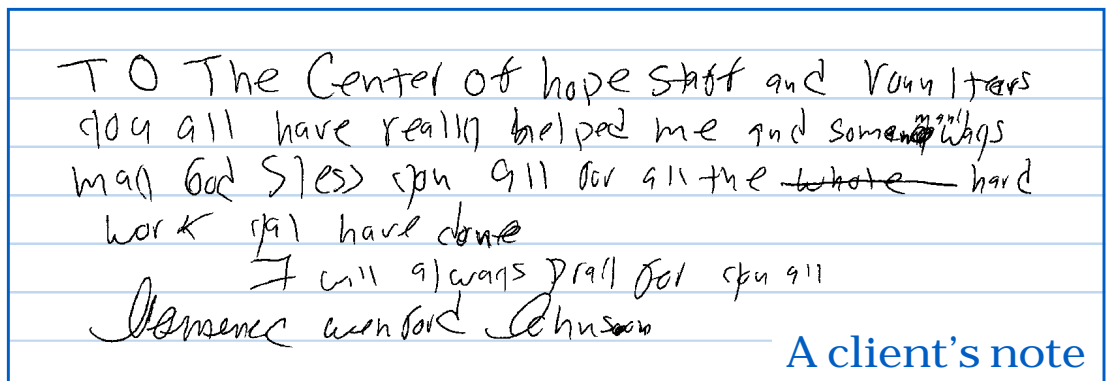 TO The Center of hope Staff and Vounlters
you all have really helped me and so many ways
may God Bless you all for all the whole hard
work yal have done
I will always Pray for you all
Johnson
A client's note